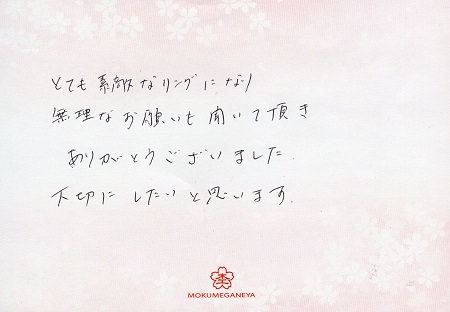 とても素敵なリングになり
無理なお願いも聞いて頂き
ありがとうございました.
大切にしたいと思います.
MOKUMEGANEYA